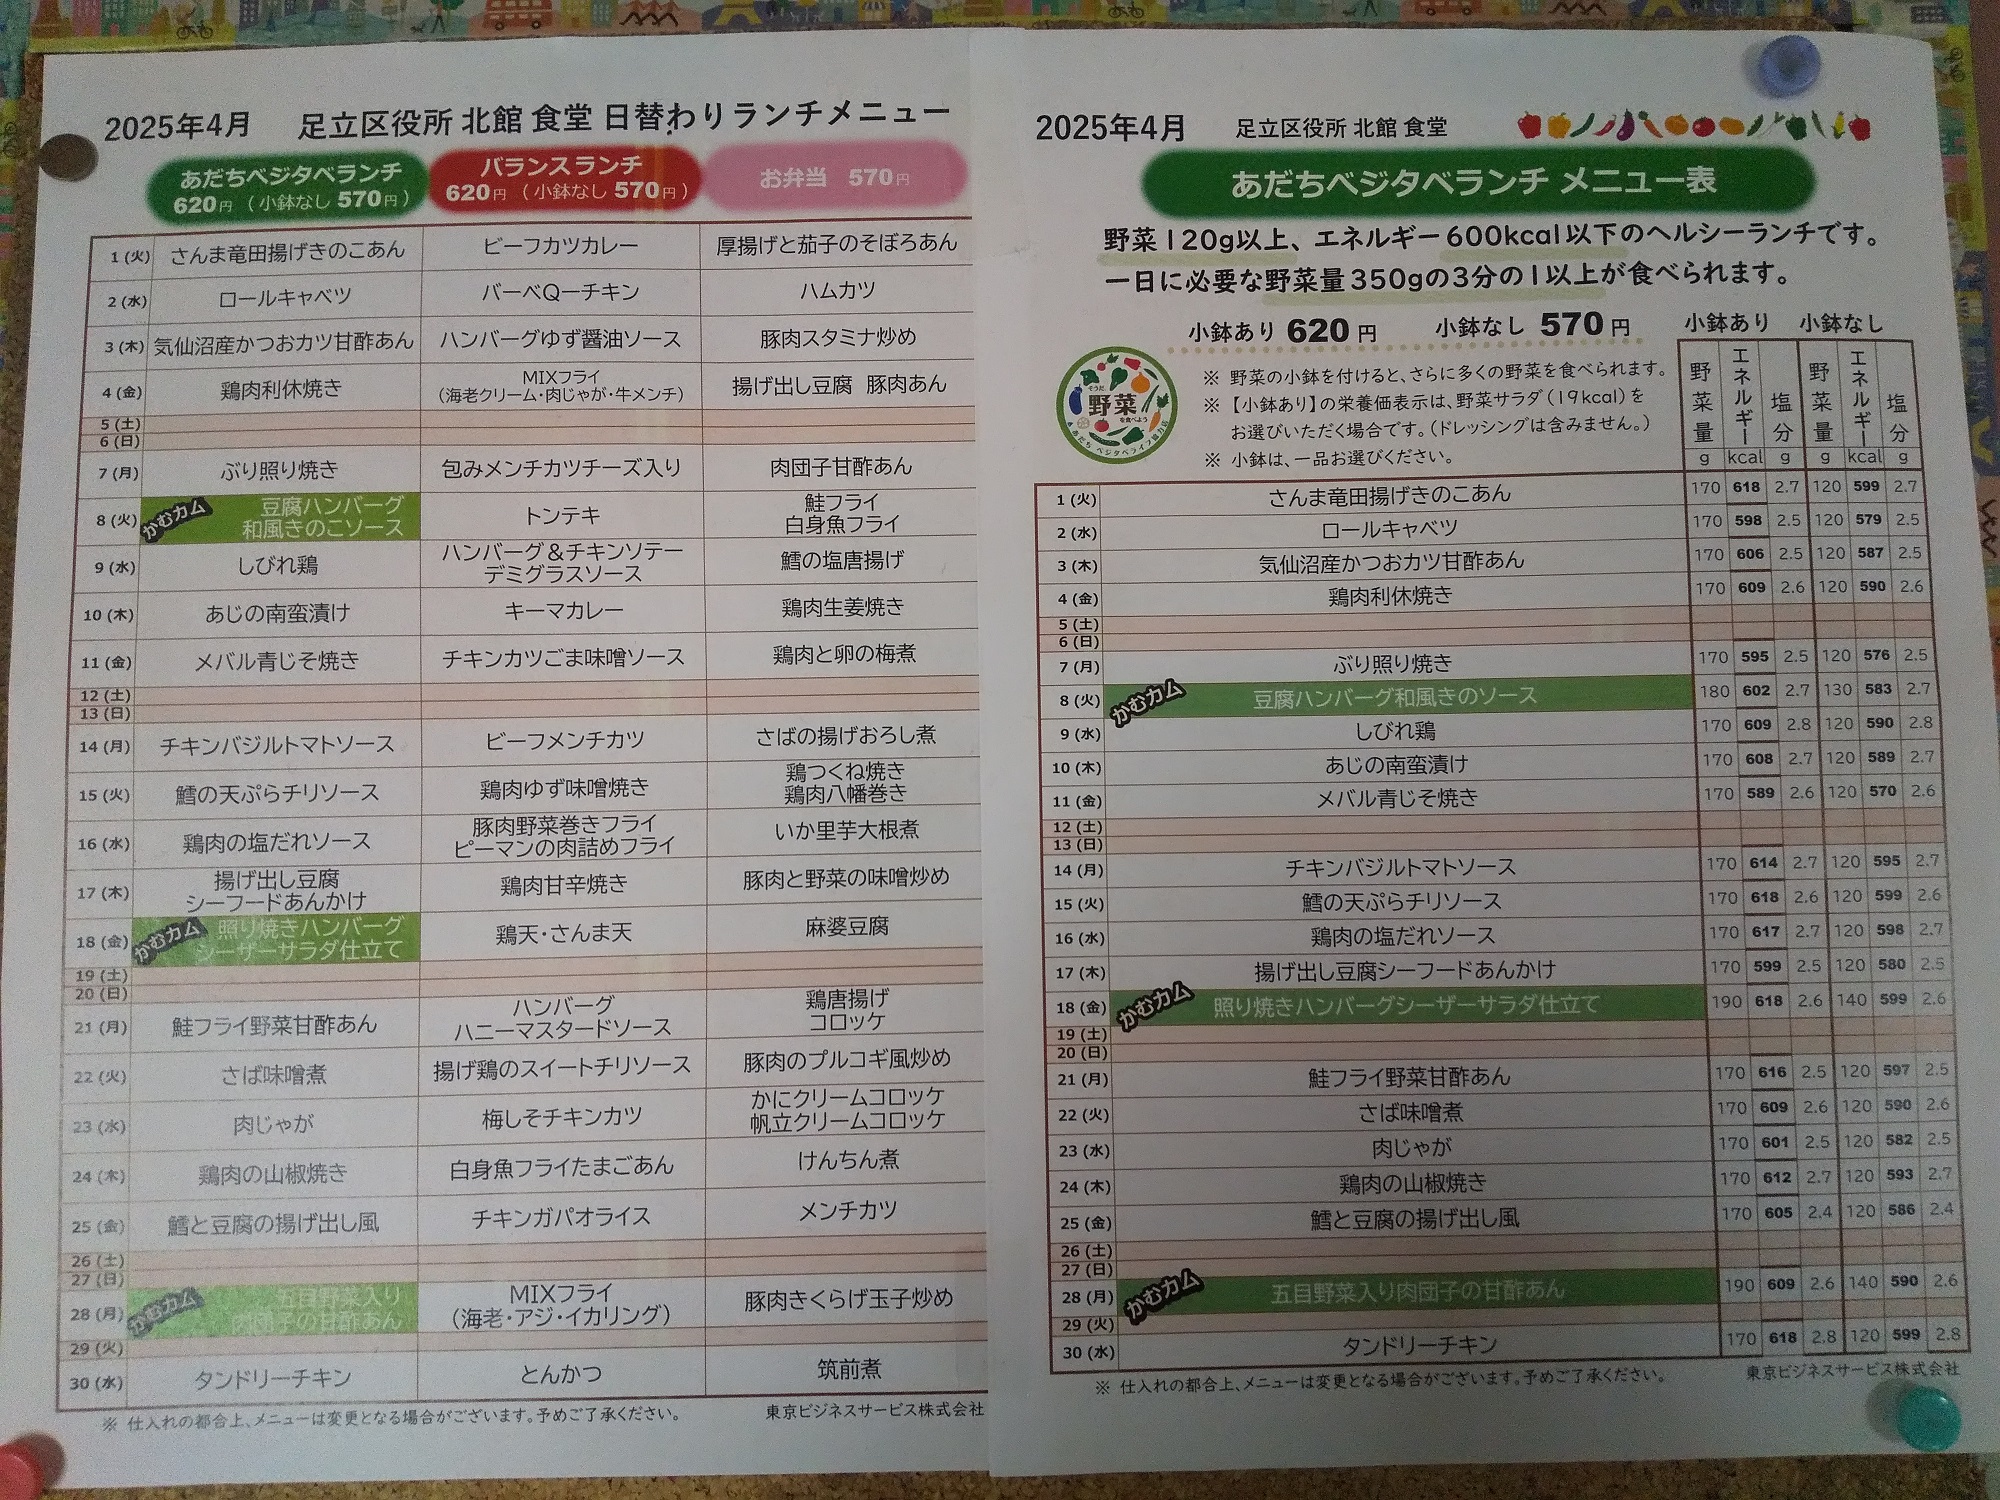 2025年4月 足立区役所 北館 食堂 日替わりランチメニュー
あだちベジタベランチ
620円（小鉢なし 570円）
バランスランチ
620円（小鉢なし 570円）
お弁当 570円
1(火) さんま竜田揚げきのこあん ビーフカツカレー 厚揚げと茄子のそぼろあん
2(水) ロールキャベツ バーベQーチキン ハムカツ
3(木) 気仙沼産かつおカツ甘酢あん ハンバーグゆず醤油ソース 豚肉スタミナ炒め
4(金) 鶏肉利休焼き MIXフライ
（海老クリーム・肉じゃが・牛メンチ） 揚げ出し豆腐 豚肉あん
5(土)
6(日)
7(月) ぶり照り焼き 包みメンチカツチーズ入り 肉団子甘酢あん
8(火) かむカム 豆腐ハンバーグ
和風きのこソース トンテキ 鮭フライ
白身魚フライ
9(水) しびれ鶏 ハンバーグ＆チキンソテー
デミグラスソース 鱈の塩唐揚げ
10(木) あじの南蛮漬け キーマカレー 鶏肉生姜焼き
11(金) メバル青じそ焼き チキンカツごま味噌ソース 鶏肉と卵の梅煮
12(土)
13(日)
14(月) チキンバジルトマトソース ビーフメンチカツ さばの揚げおろし煮
15(火) 鱈の天ぷらチリソース 鶏肉ゆず味噌焼き 鶏つくね焼き
鶏肉八幡巻き
16(水) 鶏肉の塩だれソース 豚肉野菜巻きフライ
ピーマンの肉詰めフライ いか里芋大根煮
17(木) 揚げ出し豆腐
シーフードあんかけ 鶏肉甘辛焼き 豚肉と野菜の味噌炒め
18(金) かむカム 照り焼きハンバーグ
シーザーサラダ仕立て 鶏天・さんま天 麻婆豆腐
19(土)
20(日)
21(月) 鮭フライ野菜甘酢あん ハンバーグ
ハニーマスタードソース 鶏唐揚げ
コロッケ
22(火) さば味噌煮 揚げ鶏のスイートチリソース 豚肉のプルコギ風炒め
23(水) 肉じゃが 梅しそチキンカツ かにクリームコロッケ
帆立クリームコロッケ
24(木) 鶏肉の山椒焼き 白身魚フライたまごあん けんちん煮
25(金) 鱈と豆腐の揚げ出し風 チキンガパオライス メンチカツ
26(土)
27(日)
28(月) かむカム 五目野菜入り
肉団子の甘酢あん MIXフライ
（海老・アジ・イカリング） 豚肉きくらげ玉子炒め
29(火)
30(水) タンドリーチキン とんかつ 筑前煮
※ 仕入れの都合上、メニューは変更となる場合がございます。予めご了承ください。 東京ビジネスサービス株式会社
2025年4月 足立区役所 北館 食堂
あだちベジタベランチ メニュー表
野菜120g以上、エネルギー600kcal以下のヘルシーランチです。
一日に必要な野菜量350gの3分の1以上が食べられます。
小鉢あり 620円 小鉢なし 570円
そうだ
野菜
を食べよう
あだち ベジタベライフ協力店
※ 野菜の小鉢を付けると、さらに多くの野菜を食べられます。
※ 【小鉢あり】の栄養価表示は、野菜サラダ（19kcal）を
お選びいただく場合です。（ドレッシングは含みません。）
※ 小鉢は、一品お選びください。
小鉢あり 小鉢なし
野菜量 エネルギー 塩分 野菜量 エネルギー 塩分
g kcal g g kcal g
1(火) さんま竜田揚げきのこあん 170 618 2.7 120 599 2.7
2(水) ロールキャベツ 170 598 2.5 120 579 2.5
3(木) 気仙沼産かつおカツ甘酢あん 170 606 2.5 120 587 2.5
4(金) 鶏肉利休焼き 170 609 2.6 120 590 2.6
5(土)
6(日)
7(月) ぶり照り焼き 170 595 2.5 120 576 2.5
8(火) かむカム 豆腐ハンバーグ和風きのソース 180 602 2.7 130 583 2.7
9(水) しびれ鶏 170 609 2.8 120 590 2.8
10(木) あじの南蛮漬け 170 608 2.7 120 589 2.7
11(金) メバル青じそ焼き 170 589 2.6 120 570 2.6
12(土)
13(日)
14(月) チキンバジルトマトソース 170 614 2.7 120 595 2.7
15(火) 鱈の天ぷらチリソース 170 618 2.6 120 599 2.6
16(水) 鶏肉の塩だれソース 170 617 2.7 120 598 2.7
17(木) 揚げ出し豆腐シーフードあんかけ 170 599 2.5 120 580 2.5
18(金) かむカム 照り焼きハンバーグシーザーサラダ仕立て 190 618 2.6 140 599 2.6
19(土)
20(日)
21(月) 鮭フライ野菜甘酢あん 170 616 2.5 120 597 2.5
22(火) さば味噌煮 170 609 2.6 120 590 2.6
23(水) 肉じゃが 170 601 2.5 120 582 2.5
24(木) 鶏肉の山椒焼き 170 612 2.7 120 593 2.7
25(金) 鱈と豆腐の揚げ出し風 170 605 2.4 120 586 2.4
26(土)
27(日)
28(月) かむカム 五目野菜入り肉団子の甘酢あん 190 609 2.6 140 590 2.6
29(火)
30(水) タンドリーチキン 170 618 2.8 120 599 2.8
※ 仕入れの都合上、メニューは変更となる場合がございます。予めご了承ください。 東京ビジネスサービス株式会社